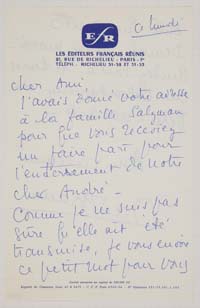 ce lundi
E/R
LES ÉDITEURS FRANÇAIS RÉUNIS
21, RUE DE RICHELIEU - PARIS - 1er
cher Ami
J'avais donné votre adresse
à la famille
pour que vous receviez
un faire part pour
l'enterrement de notre
cher André.
Comme je ne suis pas
sûre qu'elle ait été
transmise, je vous envoie
ce petit mot pour vous